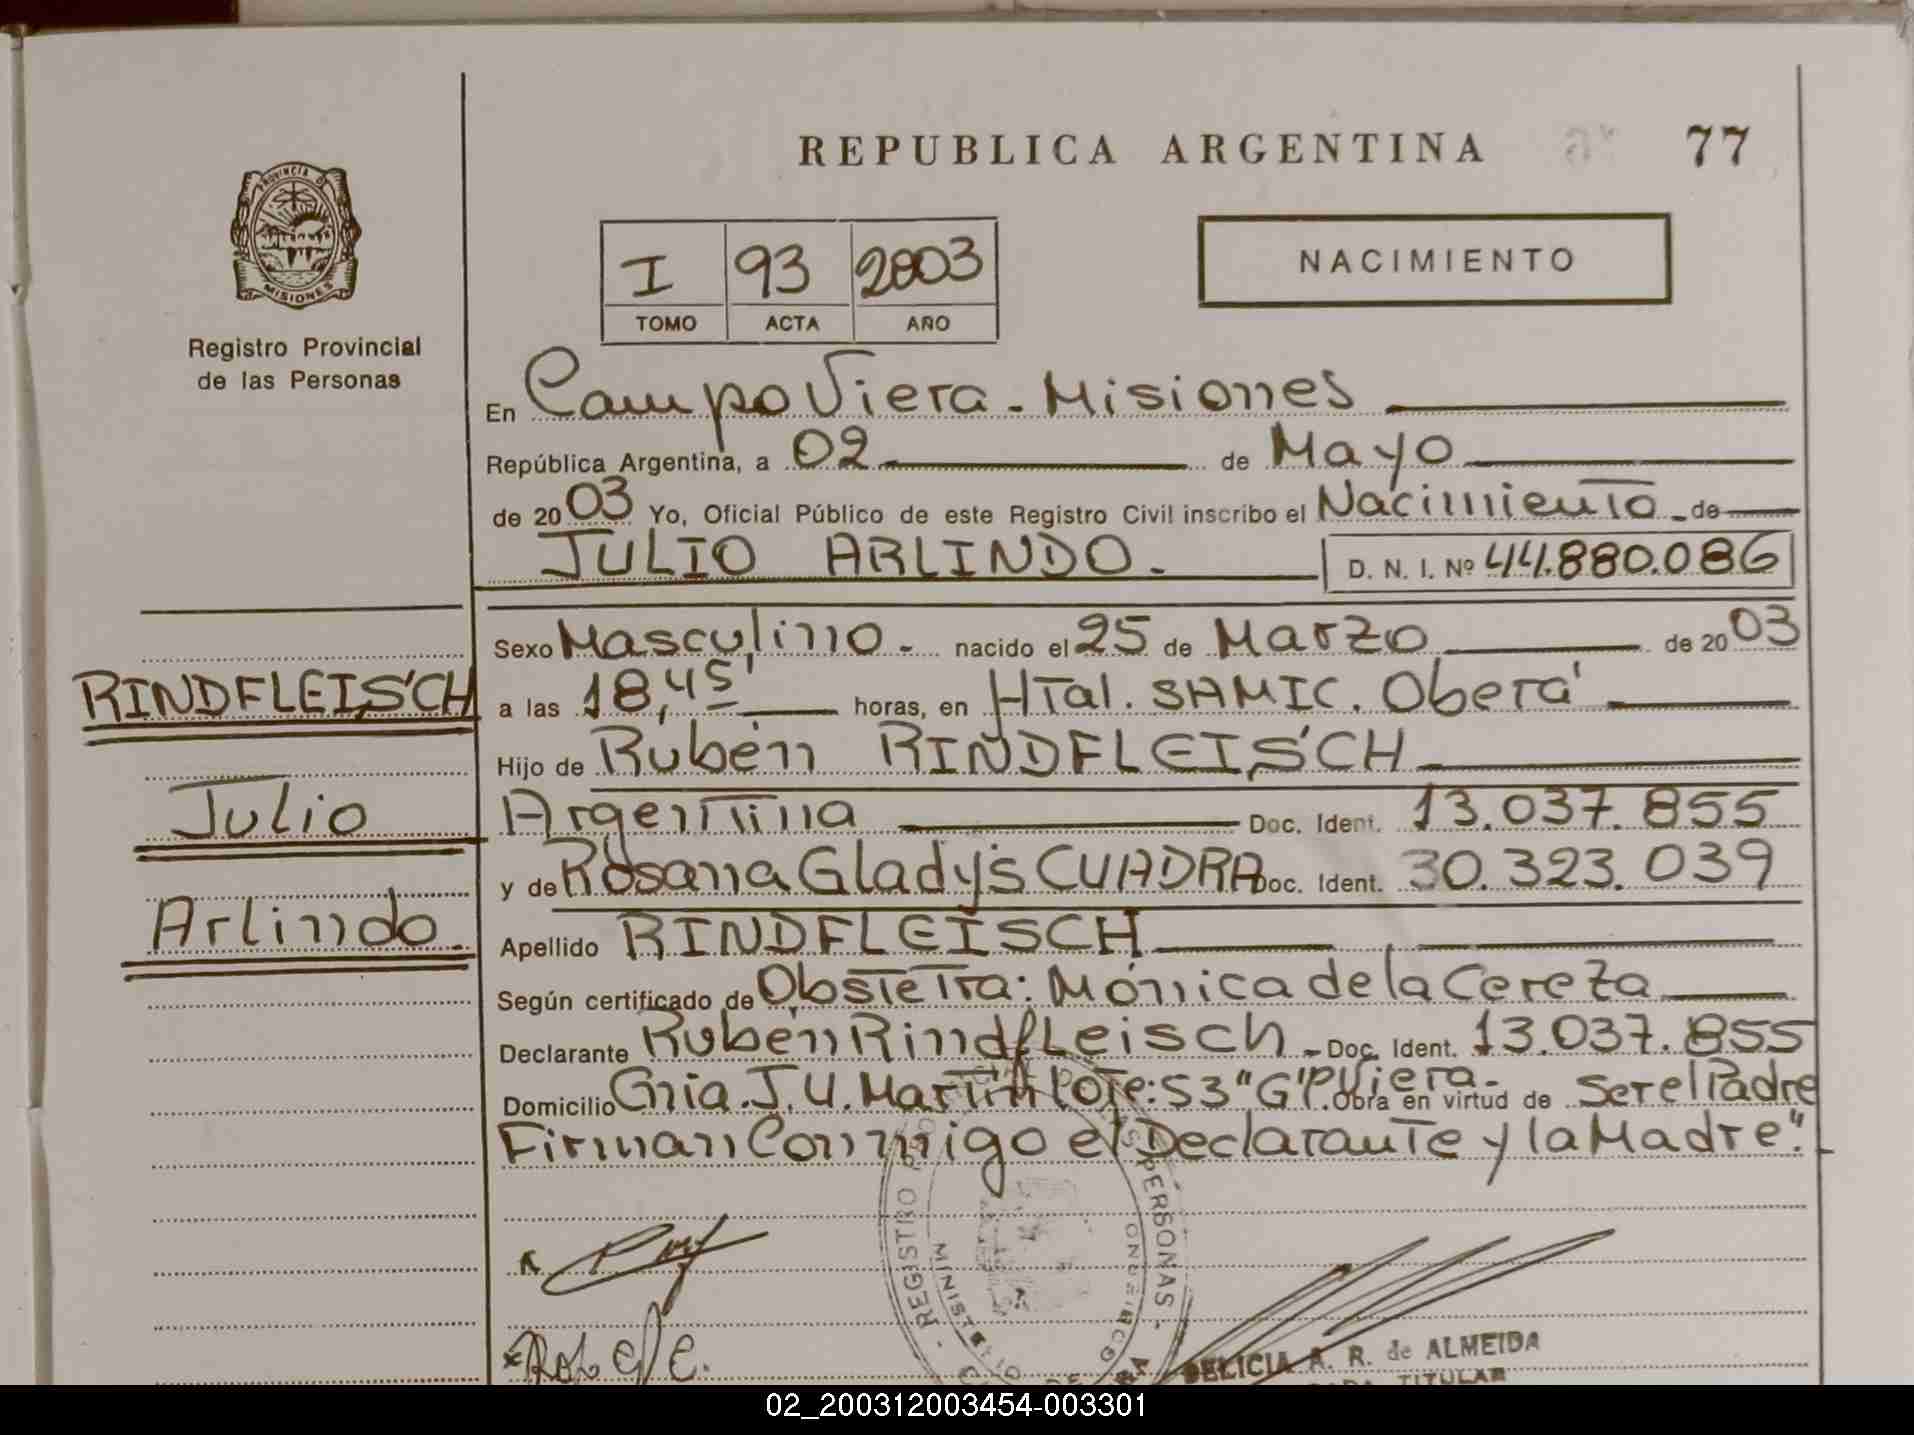 REPUBLICA ARGENTINA 77
PROVINCIA DE
MISIONES
Registro Provincial
de las Personas
I 93 2003
TOMO ACTA AÑO
NACIMIENTO
En Campo Viera - Misiones
República Argentina, a 02 de Mayo
de 2003 Yo, Oficial Público de este Registro Civil inscribo el Nacimiento - de
JULIO ARLINDO. D. N. I. Nº 44.880.086
Sexo Masculino - nacido el 25 de Marzo de 2003
RINDFLEISCH
a las 18,45' horas, en HTal. SAMIC. Oberá
Hijo de Rubén RINDFLEISCH
Julio
Argentina Doc. Ident. 13.037.855
y de Rosana Gladys CUADRA Doc. Ident. 30.323.039
Arlindo.
Apellido RINDFLEISCH
Según certificado de Obstetra: Mónica de la Cereza
Declarante Rubén Rindfleisch - Doc. Ident. 13.037.855
Domicilio Cnia. J. U. Martin lote: 53 "G" P. Viera - Obra en virtud de Ser el Padre
Firman Conmigo el Declarante y la Madre".-
REGISTRO PERSONAS
DELICIA A. R. de ALMEIDA
TITULAR
02_200312003454-003301